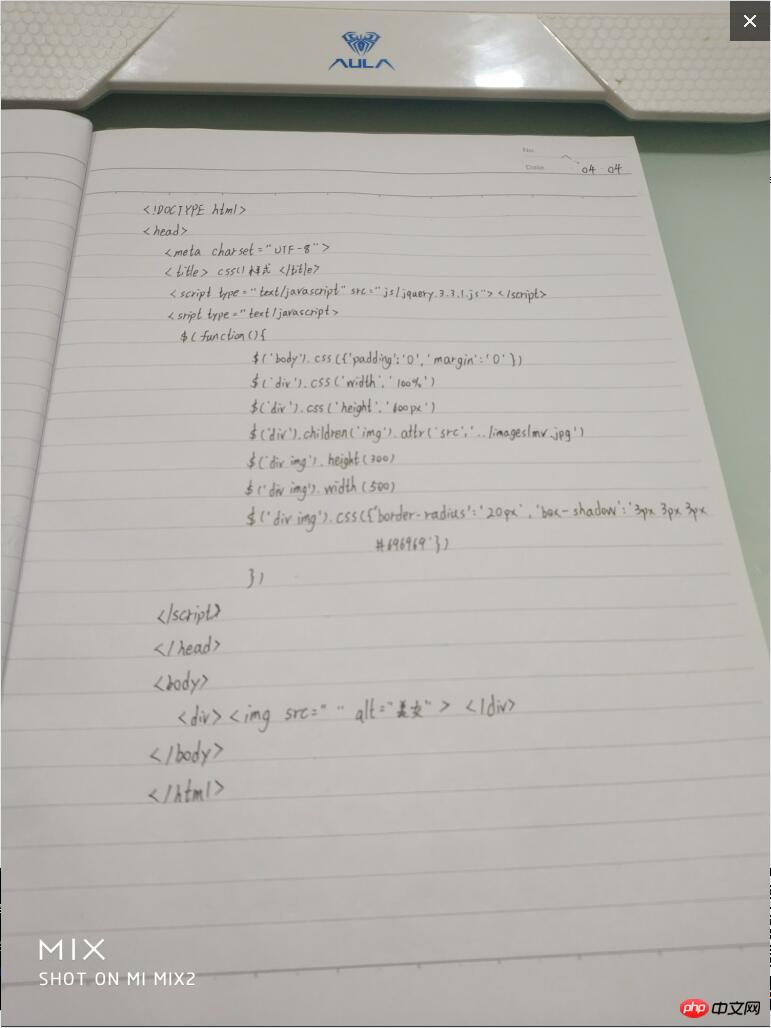 AULA
No.
Date
04 04
<!DOCTYPE html>
<head>
<meta charset="UTF-8">
<title> css()样式 </title>
<script type="text/javascript" src="js/jquery.3.3.1.js"></script>
<sript type="text/javascript>
$(function(){
$('body').css({'padding':'0','margin':'0'})
$('div').css('width','100%')
$('div').css('height','600px')
$('div').children('img').attr('src','../images/mv.jpg')
$('div img').height(300)
$('div img').width(500)
$('div img').css({'border-radius':'20px','box-shadow':'3px 3px 3px
#696969'})
})
</script>
</head>
<body>
<div><img src=" " alt="美女"> </div>
</body>
</html>
MIX
SHOT ON MI MIX2
php中文网